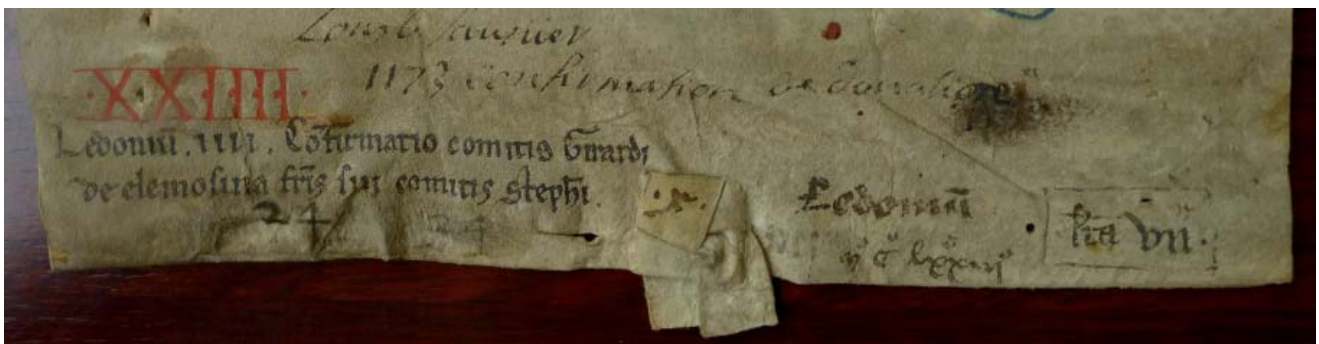 Lons le Saunier
1173 confirmation de donation
·XXIIII·
Ledonuū . IIII . Cōfirmatio comitis Girardi
de elemosina fr̄is sui comitis Steph̄i.
24
24
Ledonuū
lr̄a VII.